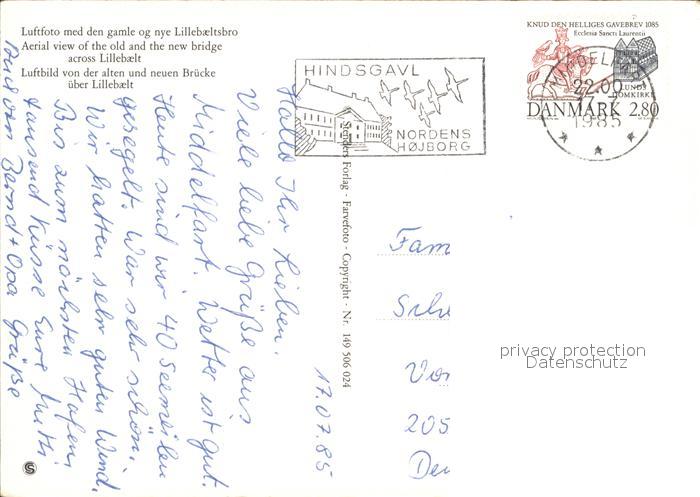 Luftfoto med den gamle og nye Lillebæltsbro
Aerial view of the old and the new bridge
across Lillebælt
Luftbild von der alten und neuen Brücke
über Lillebælt
HINDSGAVL
NORDENS
HØJBORG
KNUD DEN HELLIGES GAVEBREV 1085
Ecclesia Sancti Laurentii
LUNDS
DOMKIRKE
DANMARK 2.80
22.00
1985
Stenders Forlag - Farvefoto - Copyright - Nr. 149 506 024
17.07.85
Hallo Ihr Lieben.
Viele liebe Grüße aus
Middelfart. Wetter ist gut.
Heute sind wir 40 Seemeilen
gesegelt. War sehr schön.
Wir hatten sehr guten Wind.
Bis zum nächsten Hafen
tausend Küsse Eure Mutti
Auch von Bernd + Opa Grüße
Fam
Sch
Vor
205
Der
privacy protection
Datenschutz